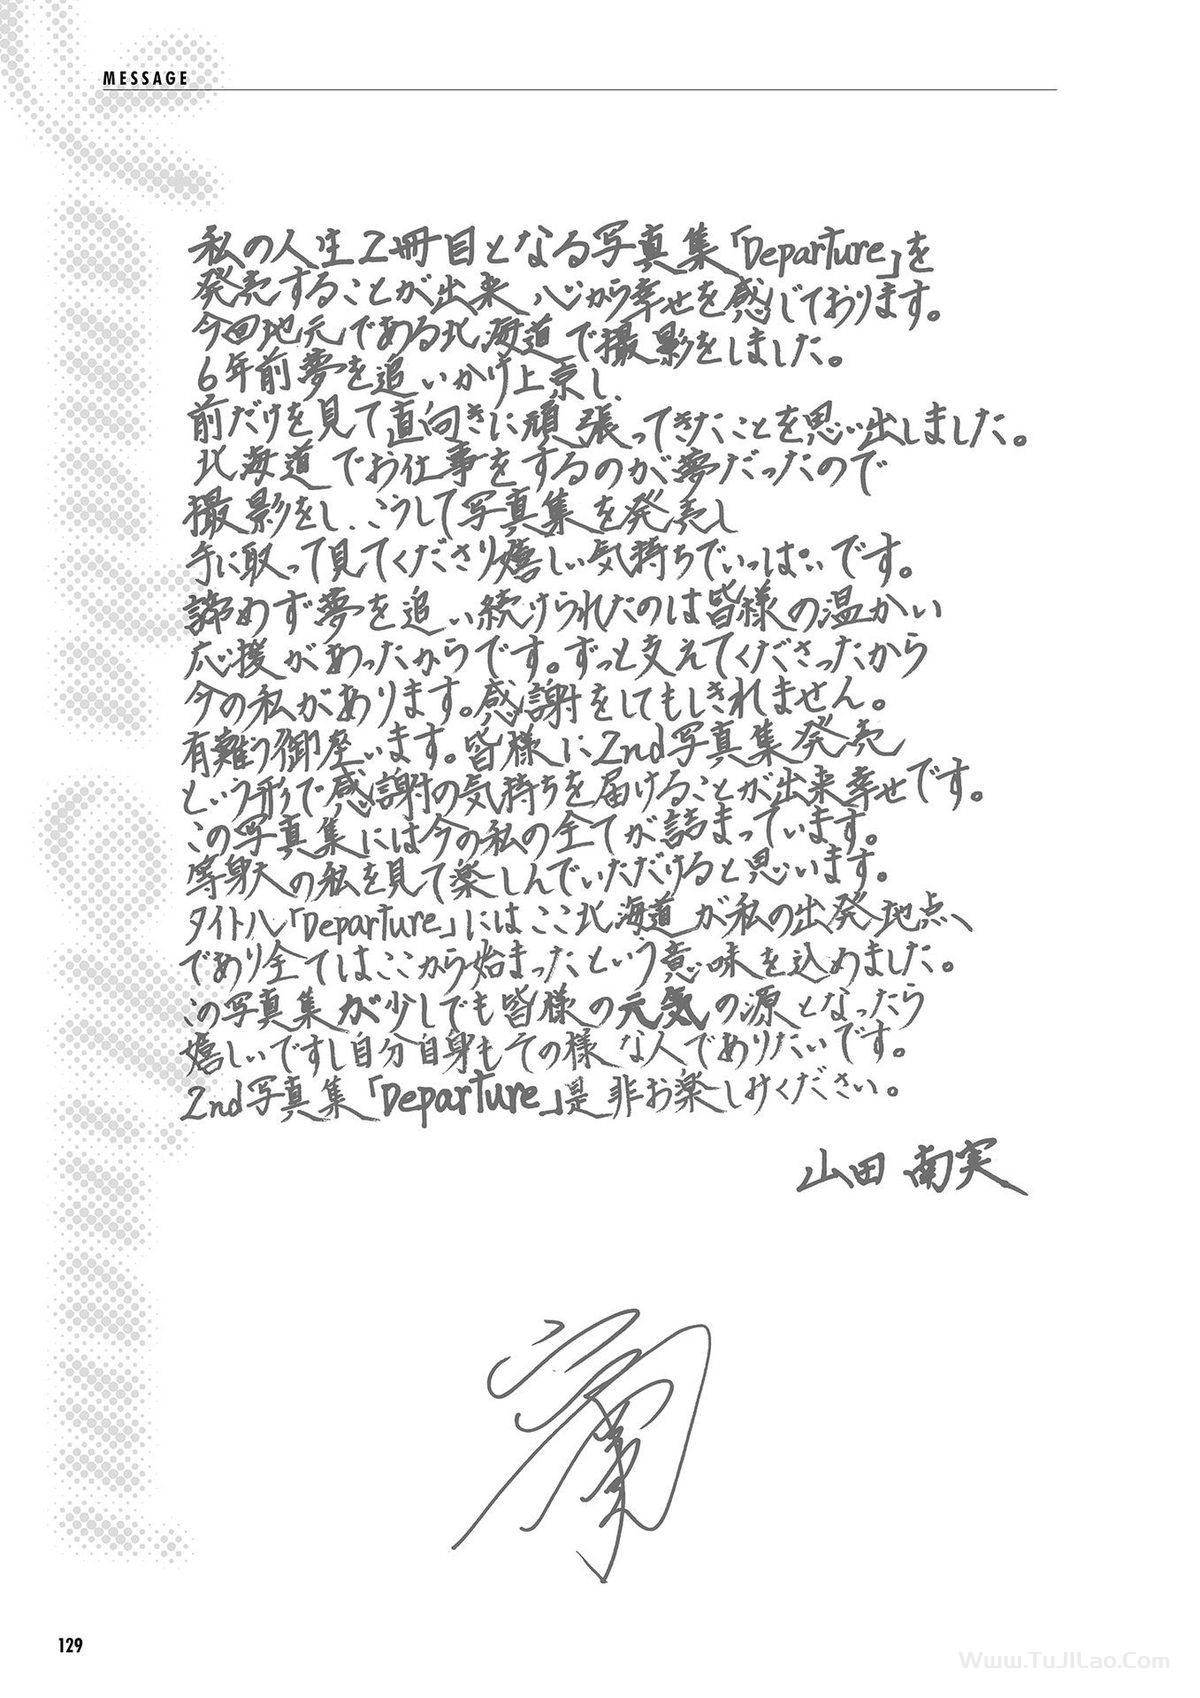 MESSAGE
私の人生2冊目となる写真集「Departure」を
発売することが出来 心から幸せを感じております。
今回地元である北海道で撮影をしました。
6年前夢を追いかけ上京し、
前だけを見て直向きに頑張ってきたことを思い出しました。
北海道でお仕事をするのが夢だったので
撮影をし、こうして写真集を発売し
手に取って見てくださり嬉しい気持ちでいっぱいです。
諦めず夢を追い続けられたのは皆様の温かい
応援があったからです。ずっと支えてくださったから
今の私があります。感謝をしてもしきれません。
有難う御座います。皆様に2nd写真集発売
という形で感謝の気持ちを届けることが出来幸せです。
この写真集には今の私の全てが詰まっています。
等身大の私を見て楽しんでいただけると思います。
タイトル「Departure」にはここ北海道が私の出発地点
であり全てはここから始まったという意味を込めました。
この写真集が少しでも皆様の元気の源となったら
嬉しいですし自分自身もその様な人でありたいです。
2nd写真集「Departure」是非お楽しみください。
山田 南実
129
Www.TuJILao.Com